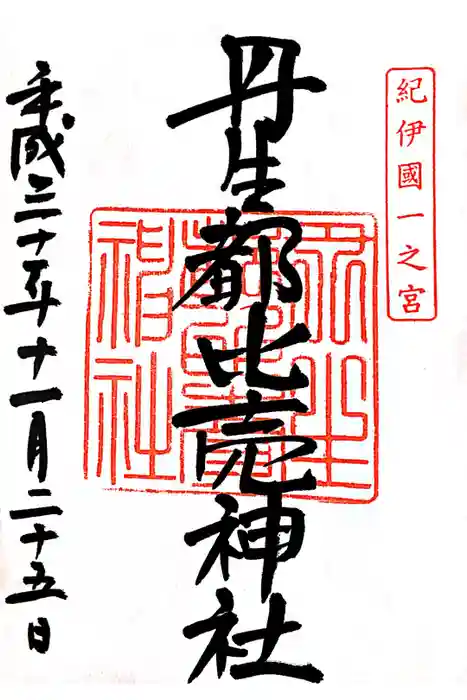 紀伊國一之宮
丹生都比売神社
神社
平成三十年十一月二十五日